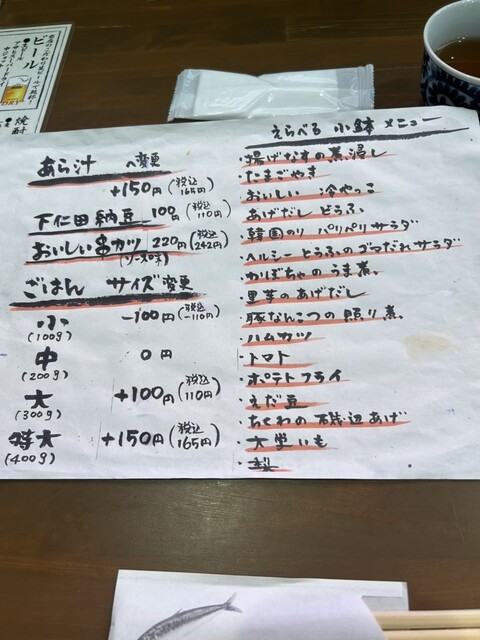 ビール
焼酎
あら汁 へ変更
+150円(税込165円)
下仁田納豆 100円(税込110円)
おいしい串カツ 220円(税込242円)
(ソース味)
ごはん サイズ変更
小 -100円(税込-110円)
(100g)
中 0円
(200g)
大 +100円(税込110円)
(300g)
特大 +150円(税込165円)
(400g)
えらべる 小鉢 メニュー
・揚げなすの煮浸し
・たまごやき
・おいしい 冷やっこ
・あげだしどうふ
・韓国のり パリパリサラダ
・ヘルシーとうふのゴマだれサラダ
・かぼちゃのうま煮。
・里芋のあげだし
・豚なんこつの照り煮。
・ハムカツ
・トマト
・ポテトフライ
・えだ豆
・ちくわの磯辺あげ
・大学いも